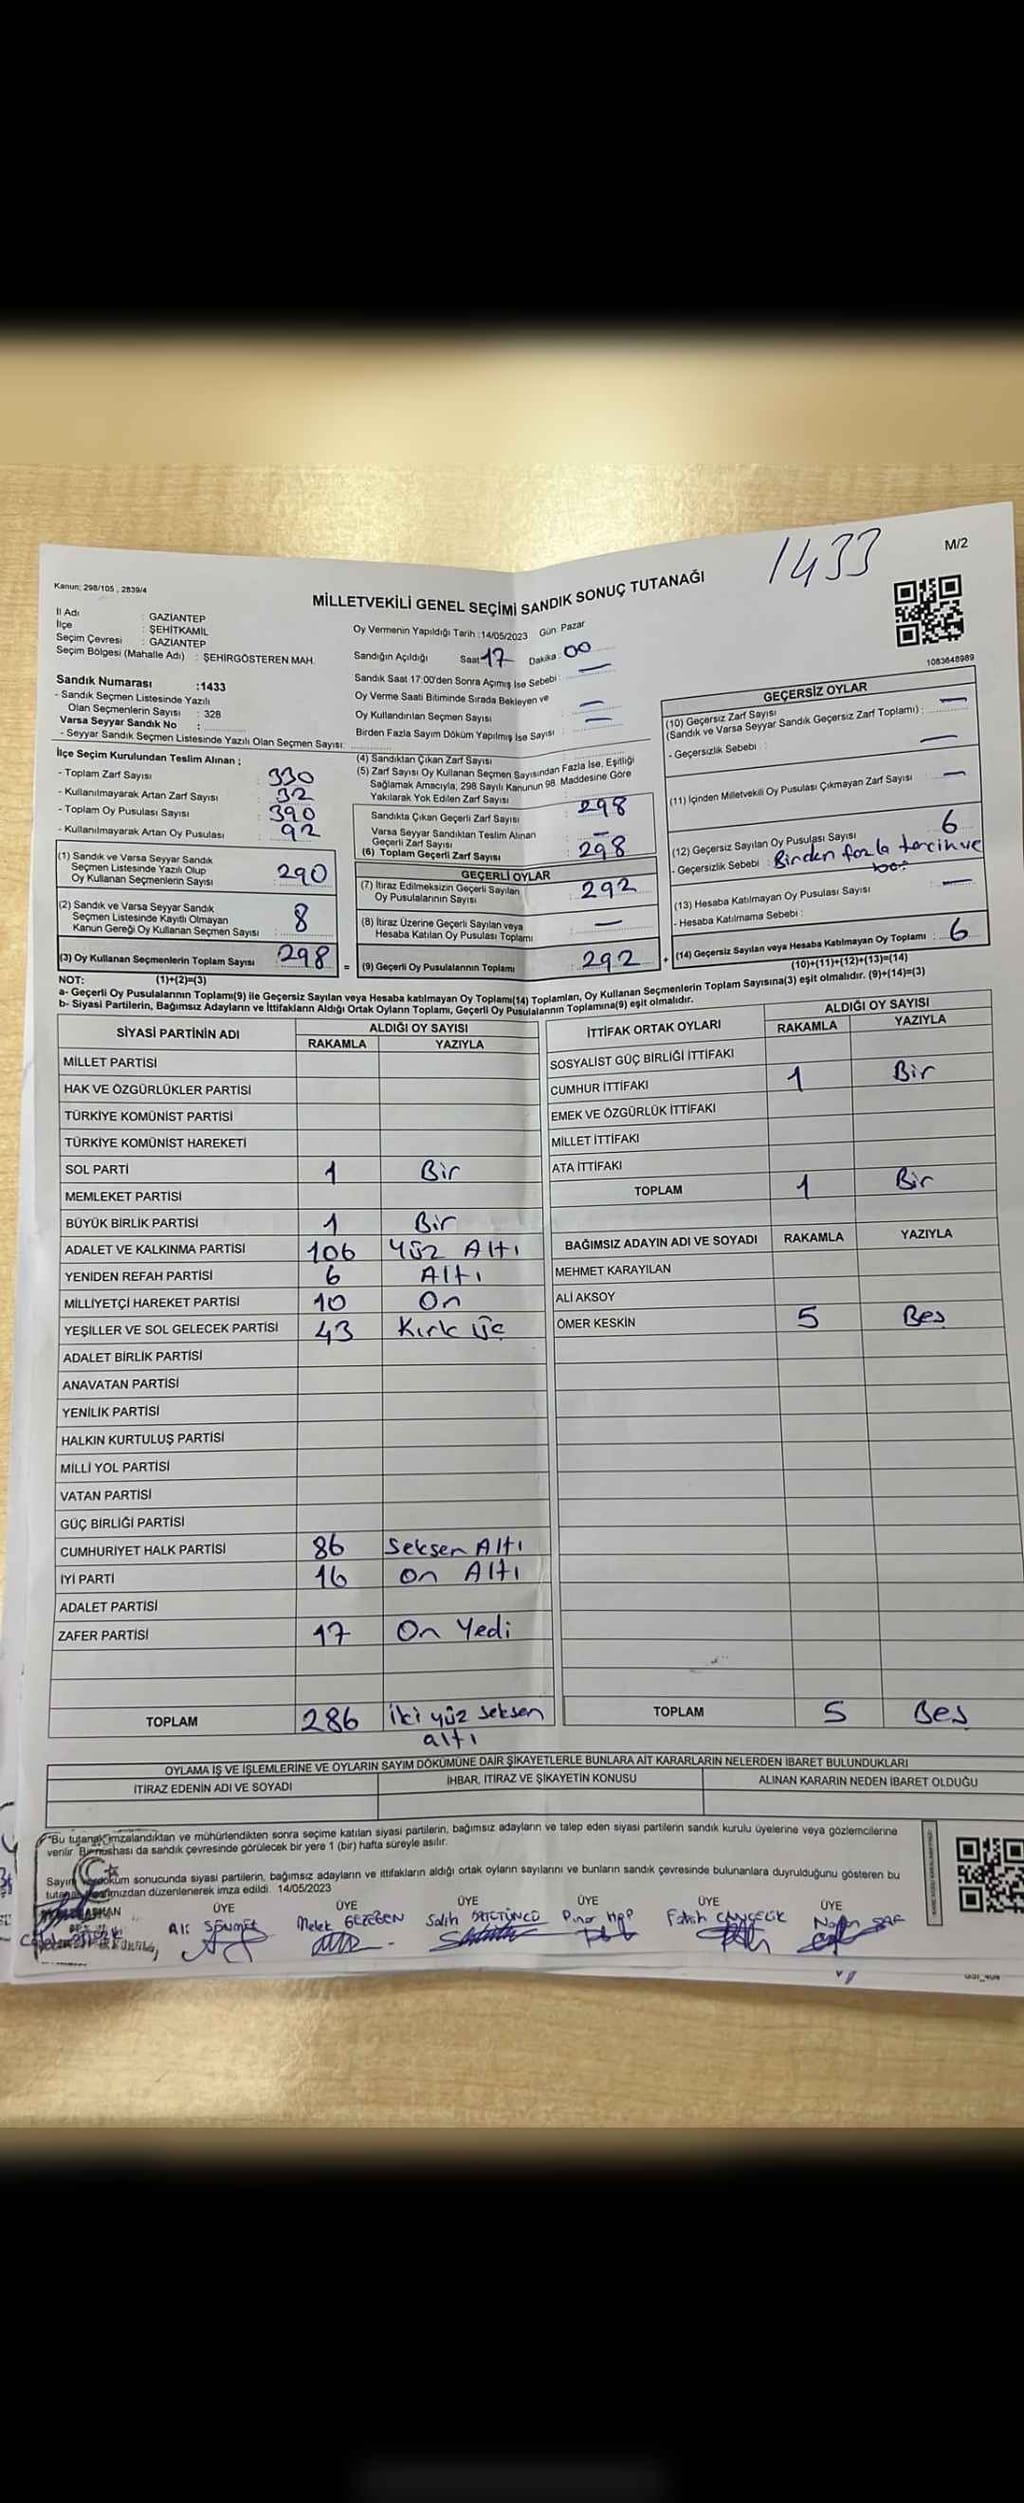 Kanun: 298/105 , 2839/4
MİLLETVEKİLİ GENEL SEÇİMİ SANDIK SONUÇ TUTANAĞI
1433
M/2
İl Adı : GAZİANTEP
İlçe : ŞEHİTKAMİL
Seçim Çevresi : GAZİANTEP
Seçim Bölgesi (Mahalle Adı) : ŞEHİRGÖSTEREN MAH.
Sandık Numarası :1433
- Sandık Seçmen Listesinde Yazılı
Olan Seçmenlerin Sayısı : 328
Varsa Seyyar Sandık No :
- Seyyar Sandık Seçmen Listesinde Yazılı Olan Seçmen Sayısı:
Oy Vermenin Yapıldığı Tarih :14/05/2023 Gün: Pazar
Sandığın Açıldığı Saat 17 Dakika: 00
Sandık Saat 17:00'den Sonra Açımış İse Sebebi : —
Oy Verme Saati Bitiminde Sırada Bekleyen ve
Oy Kullandırılan Seçmen Sayısı : —
Birden Fazla Sayım Döküm Yapılmış İse Sayısı : —
1083648989
İlçe Seçim Kurulundan Teslim Alınan ;
- Toplam Zarf Sayısı : 330
- Kullanılmayarak Artan Zarf Sayısı : 32
- Toplam Oy Pusulası Sayısı : 390
- Kullanılmayarak Artan Oy Pusulası : 92
(1) Sandık ve Varsa Seyyar Sandık
Seçmen Listesinde Yazılı Olup
Oy Kullanan Seçmenlerin Sayısı : 290
(2) Sandık ve Varsa Seyyar Sandık
Seçmen Listesinde Kayıtlı Olmayan
Kanun Gereği Oy Kullanan Seçmen Sayısı : 8
(3) Oy Kullanan Seçmenlerin Toplam Sayısı 298
(1)+(2)=(3)
(4) Sandıktan Çıkan Zarf Sayısı
(5) Zarf Sayısı Oy Kullanan Seçmen Sayısından Fazla İse, Eşitliği
Sağlamak Amacıyla; 298 Sayılı Kanunun 98. Maddesine Göre
Yakılarak Yok Edilen Zarf Sayısı
Sandıkta Çıkan Geçerli Zarf Sayısı : 298
Varsa Seyyar Sandıktan Teslim Alınan
Geçerli Zarf Sayısı : —
(6) Toplam Geçerli Zarf Sayısı : 298
GEÇERLİ OYLAR
(7) İtiraz Edilmeksizin Geçerli Sayılan
Oy Pusulalarının Sayısı : 292
(8) İtiraz Üzerine Geçerli Sayılan veya
Hesaba Katılan Oy Pusulası Toplamı : —
= (9) Geçerli Oy Pusulalarının Toplamı : 292
GEÇERSİZ OYLAR
(10) Geçersiz Zarf Sayısı
(Sandık ve Varsa Seyyar Sandık Geçersiz Zarf Toplamı) : —
- Geçersizlik Sebebi : —
(11) İçinden Milletvekili Oy Pusulası Çıkmayan Zarf Sayısı : —
(12) Geçersiz Sayılan Oy Pusulası Sayısı : 6
- Geçersizlik Sebebi : Birden fazla tercih ve
(13) Hesaba Katılmayan Oy Pusulası Sayısı : —
- Hesaba Katılmama Sebebi :
+ (14) Geçersiz Sayılan veya Hesaba Katılmayan Oy Toplamı : 6
(10)+(11)+(12)+(13)=(14)
NOT:
a- Geçerli Oy Pusulalarının Toplamı(9) ile Geçersiz Sayılan veya Hesaba katılmayan Oy Toplamı(14) Toplamları, Oy Kullanan Seçmenlerin Toplam Sayısına(3) eşit olmalıdır. (9)+(14)=(3)
b- Siyasi Partilerin, Bağımsız Adayların ve İttifakların Aldığı Ortak Oyların Toplamı, Geçerli Oy Pusulalarının Toplamına(9) eşit olmalıdır.
SİYASİ PARTİNİN ADI ALDIĞI OY SAYISI
RAKAMLA YAZIYLA
MİLLET PARTİSİ
HAK VE ÖZGÜRLÜKLER PARTİSİ
TÜRKİYE KOMÜNİST PARTİSİ
TÜRKİYE KOMÜNİST HAREKETİ
SOL PARTİ 1 Bir
MEMLEKET PARTİSİ
BÜYÜK BİRLİK PARTİSİ 1 Bir
ADALET VE KALKINMA PARTİSİ 106 Yüz Altı
YENİDEN REFAH PARTİSİ 6 Altı
MİLLİYETÇİ HAREKET PARTİSİ 10 On
YEŞİLLER VE SOL GELECEK PARTİSİ 43 Kırk Üç
ADALET BİRLİK PARTİSİ
ANAVATAN PARTİSİ
YENİLİK PARTİSİ
HALKIN KURTULUŞ PARTİSİ
MİLLİ YOL PARTİSİ
VATAN PARTİSİ
GÜÇ BİRLİĞİ PARTİSİ
CUMHURİYET HALK PARTİSİ 86 Seksen Altı
İYİ PARTİ 16 on Altı
ADALET PARTİSİ
ZAFER PARTİSİ 17 On Yedi
TOPLAM 286 iki yüz seksen
altı
İTTİFAK ORTAK OYLARI ALDIĞI OY SAYISI
RAKAMLA YAZIYLA
SOSYALİST GÜÇ BİRLİĞİ İTTİFAKI
CUMHUR İTTİFAKI 1 Bir
EMEK VE ÖZGÜRLÜK İTTİFAKI
MİLLET İTTİFAKI
ATA İTTİFAKI
TOPLAM 1 Bir
BAĞIMSIZ ADAYIN ADI VE SOYADI RAKAMLA YAZIYLA
MEHMET KARAYILAN
ALİ AKSOY
ÖMER KESKİN 5 Beş
TOPLAM 5 Beş
OYLAMA İŞ VE İŞLEMLERİNE VE OYLARIN SAYIM DÖKÜMÜNE DAİR ŞİKAYETLERLE BUNLARA AİT KARARLARIN NELERDEN İBARET BULUNDUKLARI
İTİRAZ EDENİN ADI VE SOYADI İHBAR, İTİRAZ VE ŞİKAYETİN KONUSU ALINAN KARARIN NEDEN İBARET OLDUĞU
"Bu tutanak imzalandıktan ve mühürlendikten sonra seçime katılan siyasi partilerin, bağımsız adayların ve talep eden siyasi partilerin sandık kurulu üyelerine veya gözlemcilerine
verilir. Bir nüshası da sandık çevresinde görülecek bir yere 1 (bir) hafta süreyle asılır.
Sayım ve döküm sonucunda siyasi partilerin, bağımsız adayların ve ittifakların aldığı ortak oyların sayılarını ve bunların sandık çevresinde bulunanlara duyrulduğunu gösteren bu
tutanak tarafımızdan düzenlenerek imza edildi. 14/05/2023
BAŞKAN ÜYE ÜYE ÜYE ÜYE ÜYE ÜYE
Ali SÖNMEZ Melek GEZEGEN Salih Pınar Fatih